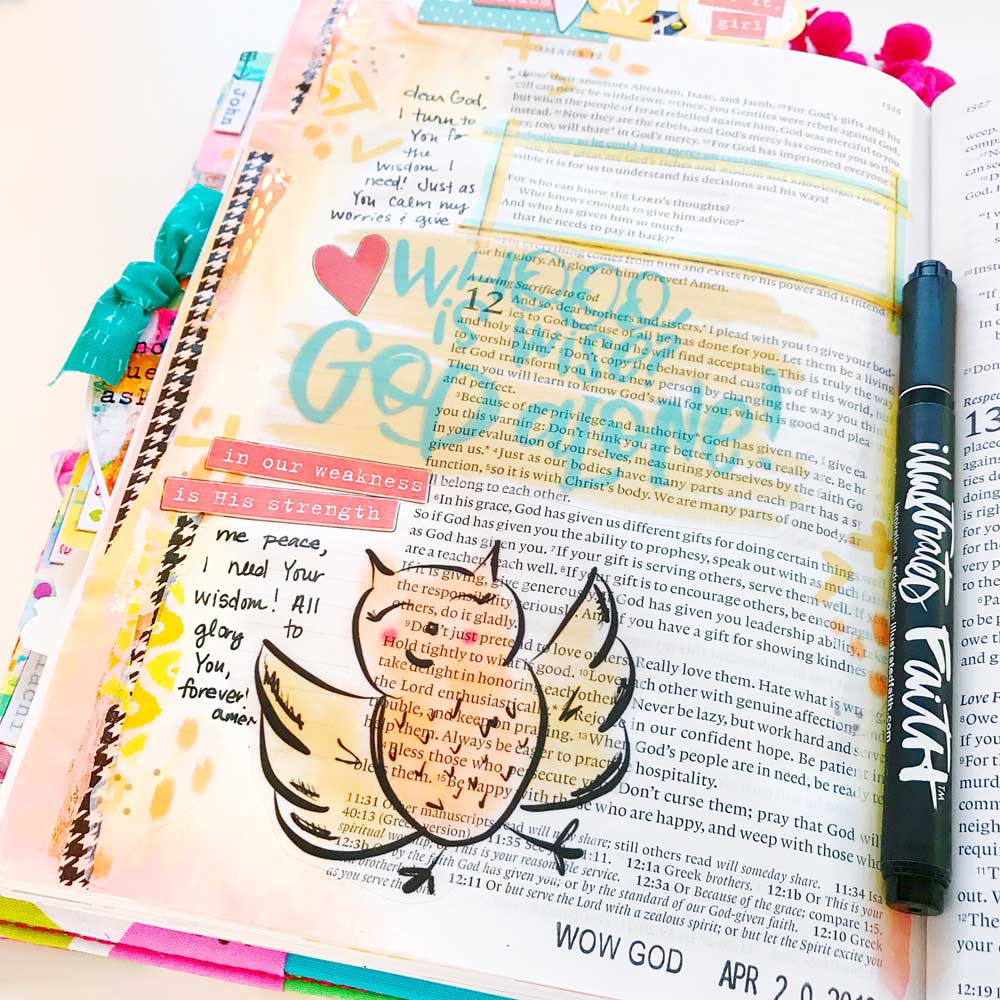 girl
John
1526
1527
dear God,
I turn to
You for
the
wisdom I
need! Just as
You calm my
worries & give
those their ancestors Abraham, Isaac, and Jacob. 29For God's gifts and his
call can never be withdrawn. 30Once, you Gentiles were rebels against God,
but when the people of Israel rebelled against him, God was merciful to you
instead. 31Now they are the rebels, and God's mercy has come to you so that
they, too, will share* in God's mercy. 32For God has imprisoned everyone in
sible it is for us to understand his decisions and his ways!
For who can know the LORD's thoughts?
Who knows enough to give him advice?*
And who has given him so much
that he needs to pay it back?*
everything comes from him and exists by his power and is intended
for his glory. All glory to him forever! Amen.
is wise
God alone!
A Living Sacrifice to God
12 And so, dear brothers and sisters,* I plead with you to give your bod-
ies to God because of all he has done for you. Let them be a living
and holy sacrifice—the kind he will find acceptable. This is truly the way
to worship him.* 2Don't copy the behavior and customs of this world, but
let God transform you into a new person by changing the way you think.
Then you will learn to know God's will for you, which is good and
and perfect.
3Because of the privilege and authority* God has given me, I give
you this warning: Don't think you are better than you really are. Be
in your evaluation of yourselves, measuring yourselves by the faith
given us.* 4Just as our bodies have many parts and each part has a
function, 5so it is with Christ's body. We are many parts of one body,
all belong to each other.
in our weakness
is His strength
me peace,
I need Your
wisdom! All
glory to
You,
forever!
amen
6In his grace, God has given us different gifts for doing certain things
So if God has given you the ability to prophesy, speak out with as much
as God has given you. 7If your gift is serving others, serve them well. If
are a teacher, teach well. 8If your gift is to encourage others, be encouraging
If it is giving, give generously. If God has given you leadership ability,
the responsibility seriously. And if you have a gift for showing kindness
others, do it gladly.
9Don't just pretend to love others. Really love them. Hate what is
Hold tightly to what is good. 10Love each other with genuine affection,
take delight in honoring each other. Never be lazy, but work hard and serve
the Lord enthusiastically.* Rejoice in our confident hope. Be patient in
trouble, and keep on praying. 13When God's people are in need, be ready to
them. Always be eager to practice hospitality.
Bless those who persecute you. Don't curse them; pray that God will
bless them. 15Be happy with those who are happy, and weep with those who
11:31 Other manuscripts read will now share; still others read will someday share. 11:34 Isa
40:13 (Greek version). 11:35 See 11. 12:1a Greek brothers. 12:1b Or This is your
spiritual worship; or This is your reasonable service. 12:3a Or Because of the grace; compare 1:5.
12:3b Or by the faith God has given you; or by the standard of our God-given faith. 12:10 Greek
12:11 Or but serve the Lord with a zealous spirit; or but let the Spirit excite you
as you serve the
WOW GOD
APR 20
illustrated FAITH™
illustratedfaith.com
13
Love
12:19